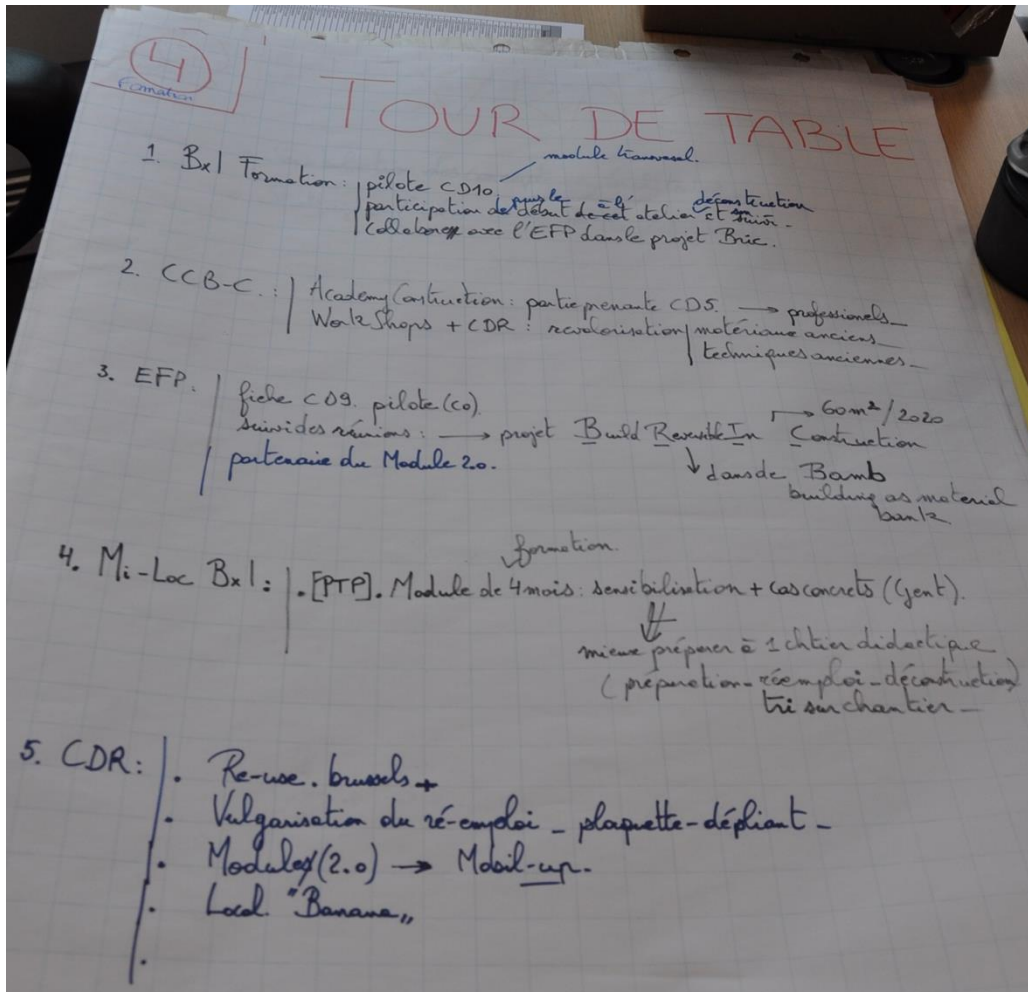 4
Formation
TOUR DE TABLE
module transversal.
1. Bxl Formation: pilote CD10
participation depuis le début de cet atelier et suivi.
à la déconstruction
Collabore avec l'EFP dans le projet Bric.
2. CCB-C.: Academy Construction: partie prenante CD5. → professionels
WorkShops + CDR: revalorisation matériaux anciens
techniques anciennes
3. EFP. fiche CD9. pilote (co).
→ 60m²/2020
suivi des réunions: → projet Build Reversible In Construction
partenaire du Module 2.0.
↓ dans de Bamb
building as material
bank
formation.
4. Mi-Loc Bxl: . [PTP]. Module de 4 mois: sensibilisation + cas concrets (Gent).
mieux préparer à 1 chtier didactique
(préparation - réemploi - déconstruction)
tri sur chantier -
5. CDR: . Re-use. brussels +
. Vulgarisation du ré-emploi - plaquette-dépliant -
. Module (2.0) → Mobil-up.
. Local. "Banana„
.